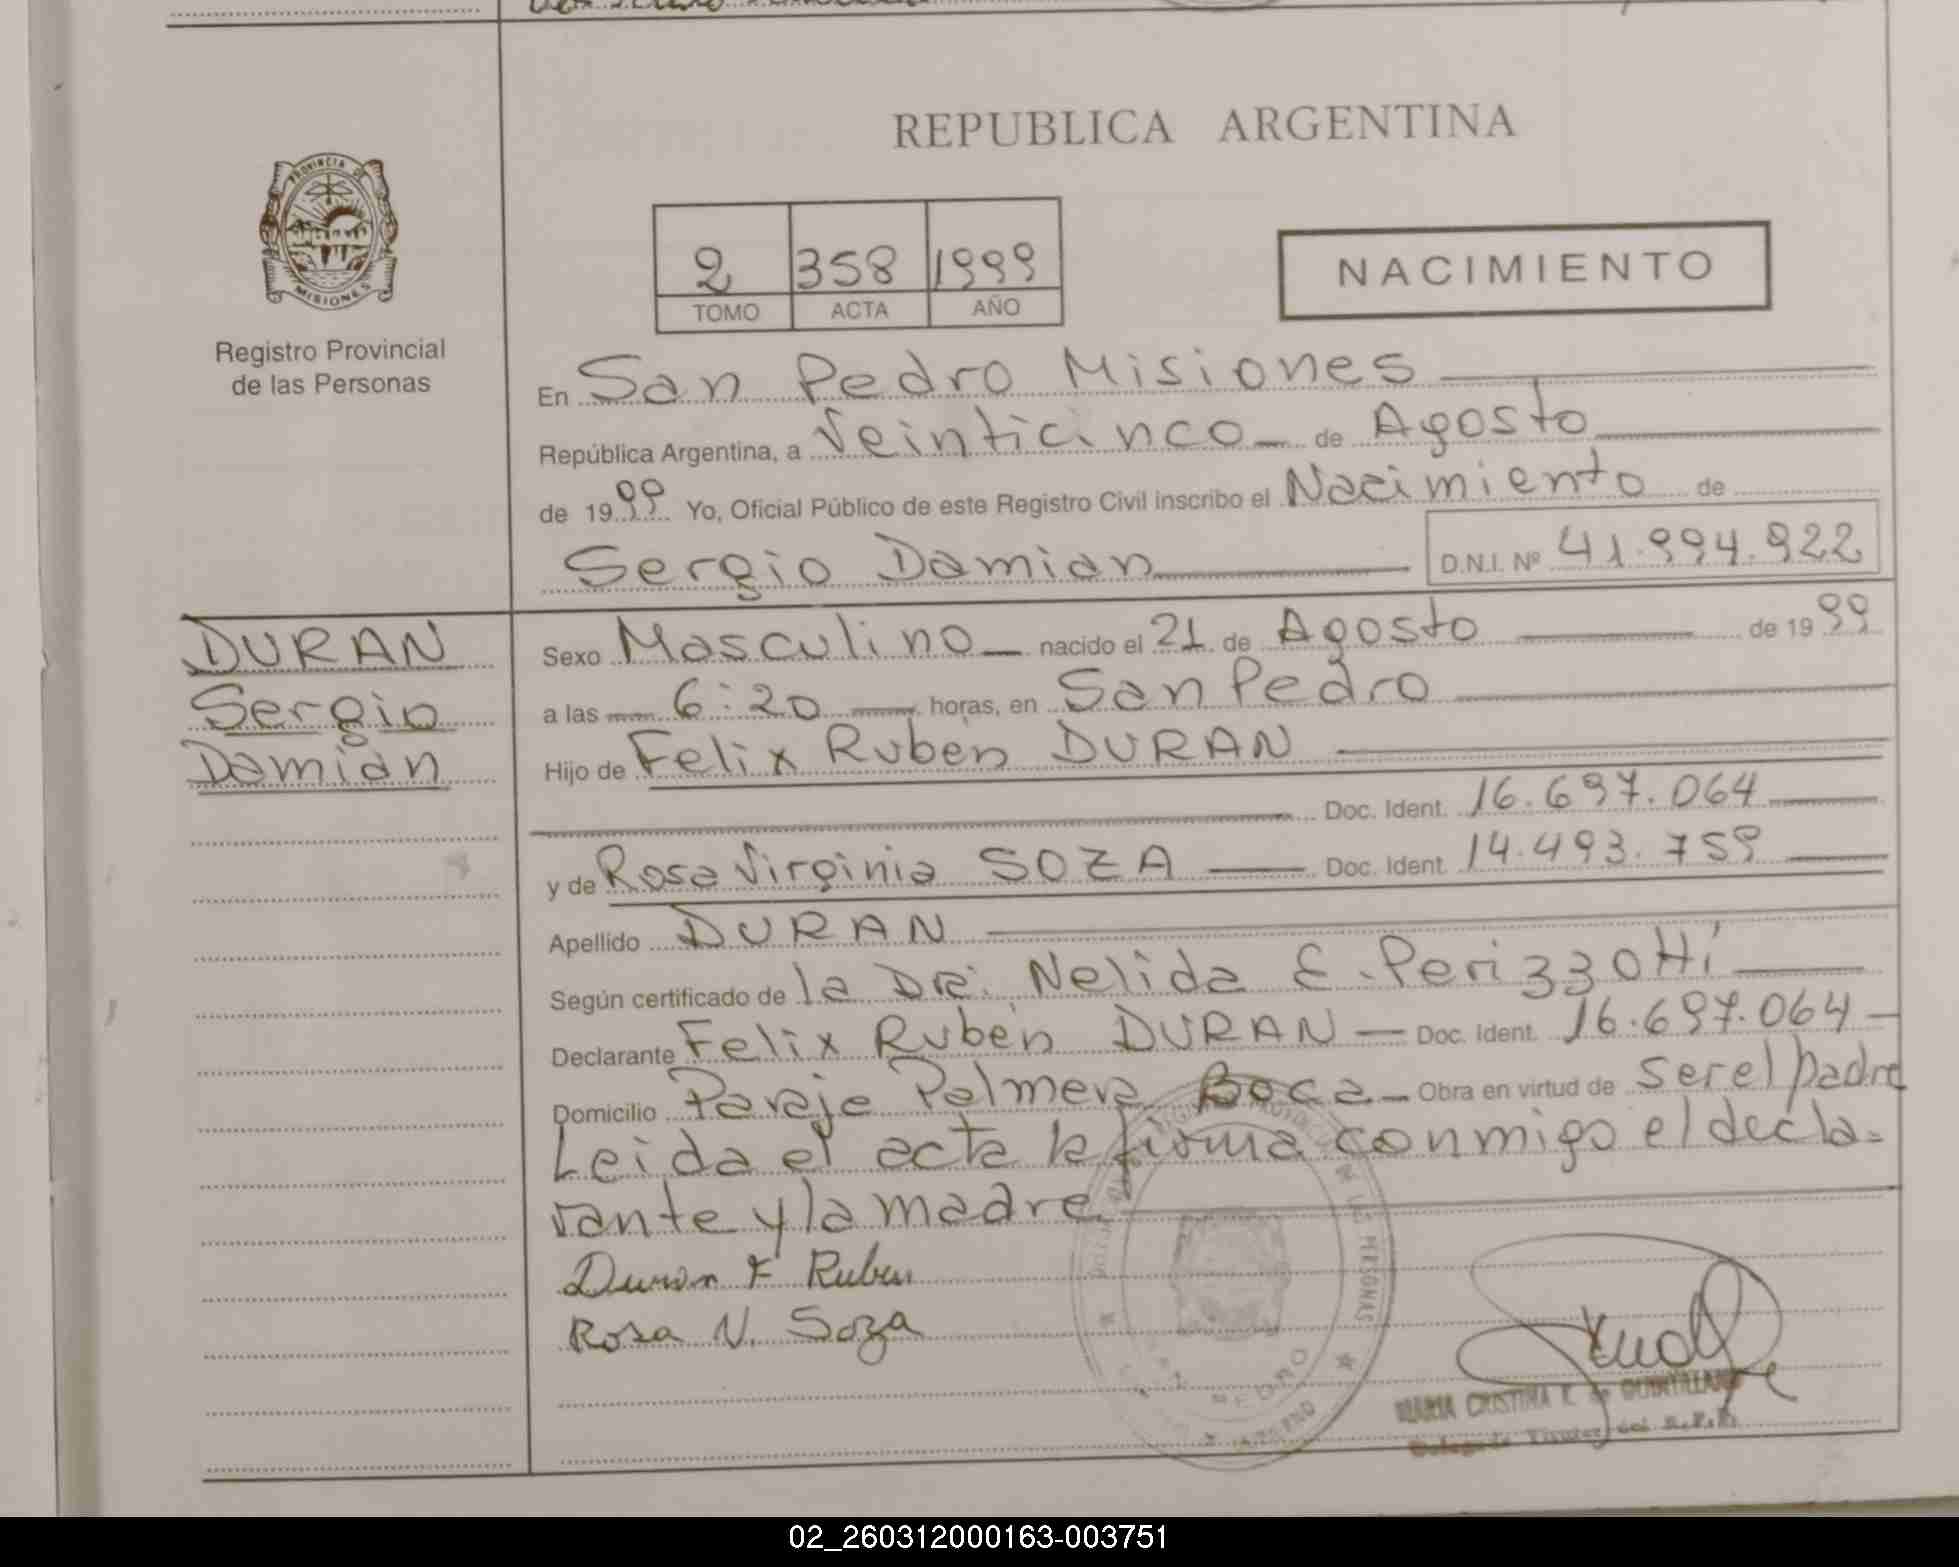 REPUBLICA ARGENTINA
PROVINCIA DE
MISIONES
Registro Provincial
de las Personas
2 358 1999
TOMO ACTA AÑO
NACIMIENTO
En San Pedro Misiones
República Argentina, a Veinticinco de Agosto
de 1999 Yo, Oficial Público de este Registro Civil inscribo el Nacimiento de
Sergio Damian D.N.I. Nº 41.994.922
DURAN
Sergio
Damián
Sexo Masculino nacido el 21 de Agosto de 1999
a las 6:20 horas, en San Pedro
Hijo de Felix Ruben DURAN
Doc. Ident. 16.697.064
y de Rosa Virginia SOZA Doc. Ident. 14.493.759
Apellido DURAN
Según certificado de la Dra. Nelida E. Perizzotti
Declarante Felix Ruben DURAN Doc. Ident. 16.697.064
Domicilio Paraje Palmera Boca Obra en virtud de ser el padre
Leida el acta la firma conmigo el decla=
rante y la madre
Duran F Ruben
Rosa V. Soza
DE LAS PERSONAS
PEDRO
MARIA CRISTINA R. de QUINTILLANO
02_260312000163-003751